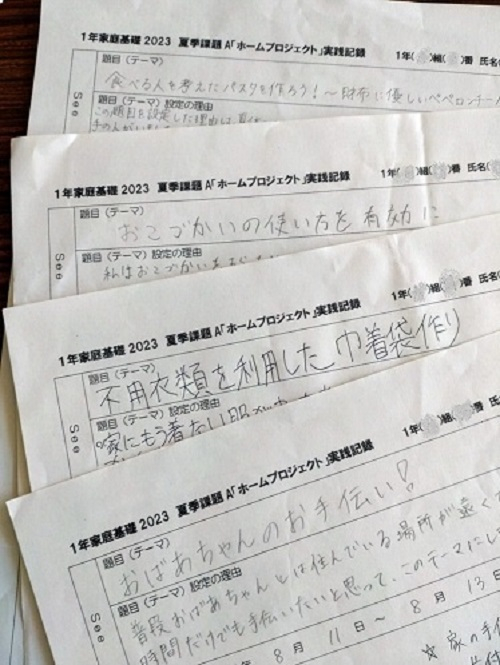 1年家庭基礎2023 夏季課題A「ホームプロジェクト」実践記録 1年( )組( )番 氏名(
題目(テーマ)
食べる人を考えたパスタを作ろう!~財布に優しいペペロンチーノ
See
題目(テーマ)設定の理由
この題目を設定した理由は、
1年家庭基礎2023 夏季課題A「ホームプロジェクト」実践記録 1年( )組( )番 氏名
題目(テーマ)
おこづかいの使い方を有効に
See
題目(テーマ)設定の理由
私はおこづかいを
1年家庭基礎2023 夏季課題A「ホームプロジェクト」実践記録 1年( )組( )番 氏名
題目(テーマ)
不用衣類を利用した巾着袋作り
See
題目(テーマ)設定の理由
家にもう着ない服が
1年家庭基礎2023 夏季課題A「ホームプロジェクト」実践記録 1年( )組( )番 氏
題目(テーマ)
おばあちゃんのお手伝い!
See
題目(テーマ)設定の理由
普段おばあちゃんとは住んでいる場所が遠く
時間だけでも手伝いたいと思って、このテーマにし
年 8月 11日 ~ 8月 13日
☆家の手